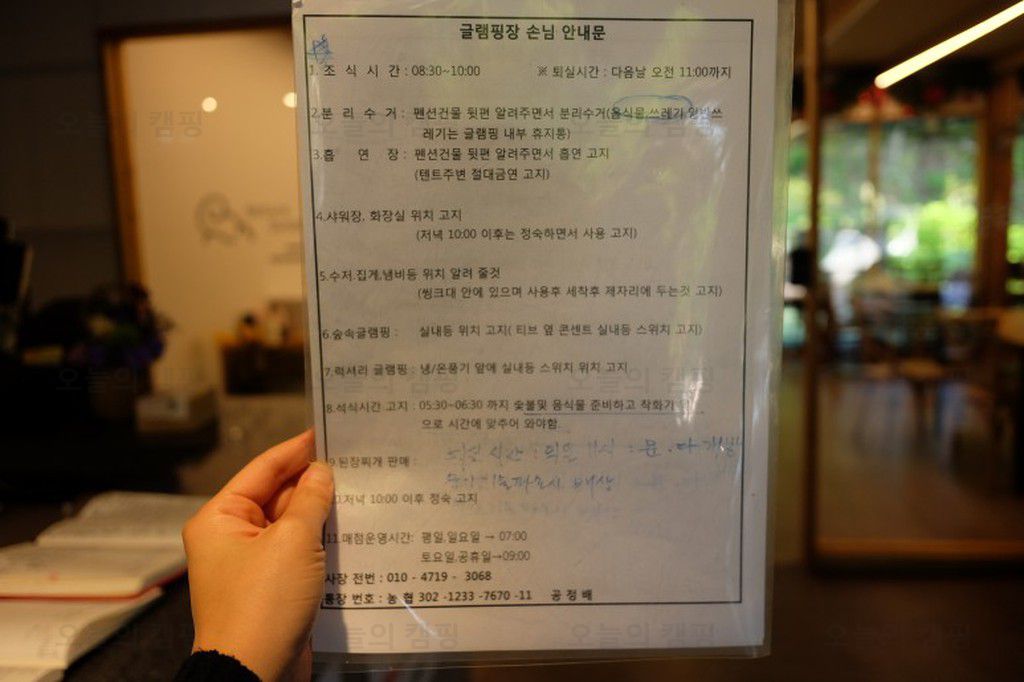 글램핑장 손님 안내문
1. 조 식 시 간 : 08:30~10:00 ※ 퇴실시간 : 다음날 오전 11:00까지
2.분 리 수 거 : 팬션건물 뒷편 알려주면서 분리수거(음식물,쓰레기 일반쓰
레기는 글램핑 내부 휴지통)
3.흡 연 장 : 팬션건물 뒷편 알려주면서 흡연 고지
(텐트주변 절대금연 고지)
4.샤워장, 화장실 위치 고지
(저녁 10:00 이후는 정숙하면서 사용 고지)
5.수저.집게,냄비등 위치 알려 줄것
(씽크대 안에 있으며 사용후 세척후 제자리에 두는것 고지)
6.숲속글램핑 : 실내등 위치 고지( 티브 옆 콘센트 실내등 스위치 고지)
7.럭셔리 글램핑 : 냉/온풍기 앞에 실내등 스위치 위치 고지
8.석식시간 고지 : 05:30~06:30 까지 숯불및 음식물 준비하고 착화기
으로 시간에 맞추어 와야함
9.된장찌개 판매 :
저녁 10:00 이후 정숙 고지
11.매점운영시간: 평일,일요일 → 07:00
토요일,공휴일→09:00
사장 전번 : 010 - 4719 - 3068
통장 번호 : 농 협 302 -1233 -7670 -11 공정배
오늘의 캠핑